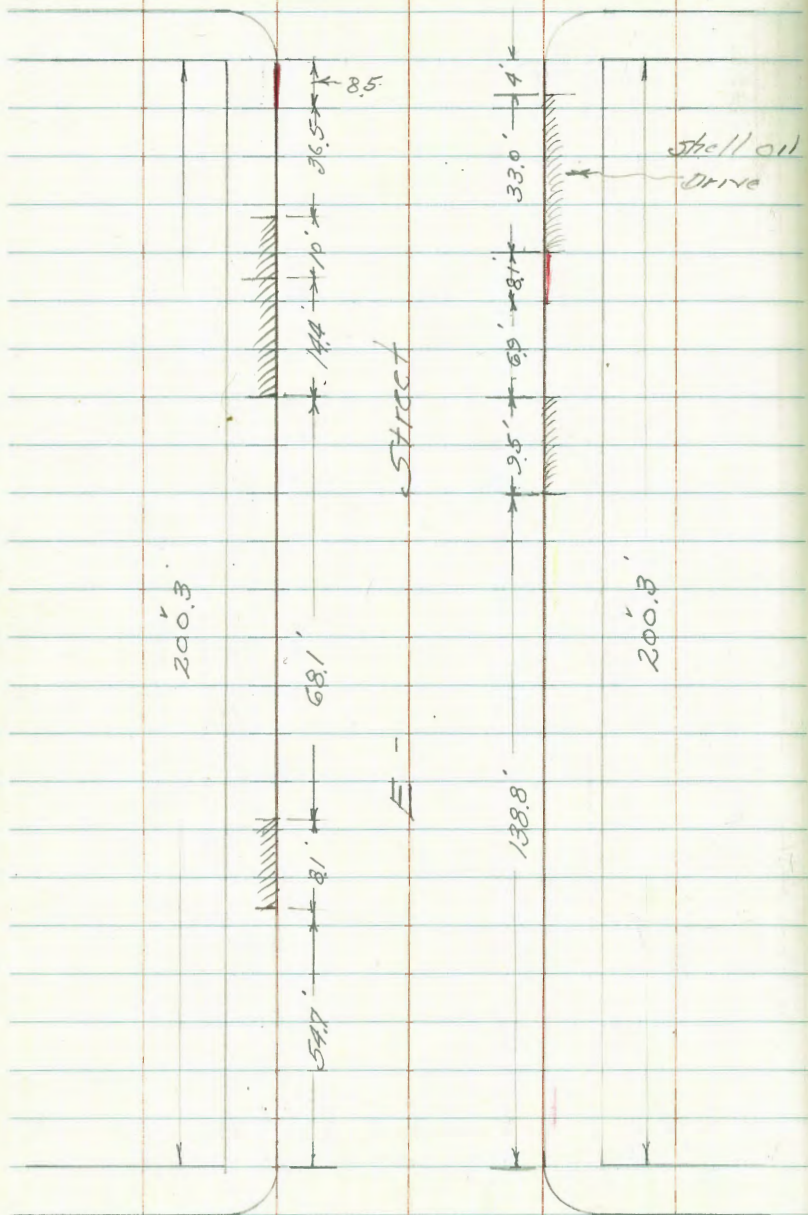 8.5
36.5'
10'
14.4'
68.1'
8.1'
54.7'
200.3'
E - Street
4'
33.0'
8.1'
6.9'
9.5'
138.8'
200.3'
Shell oil
Drive